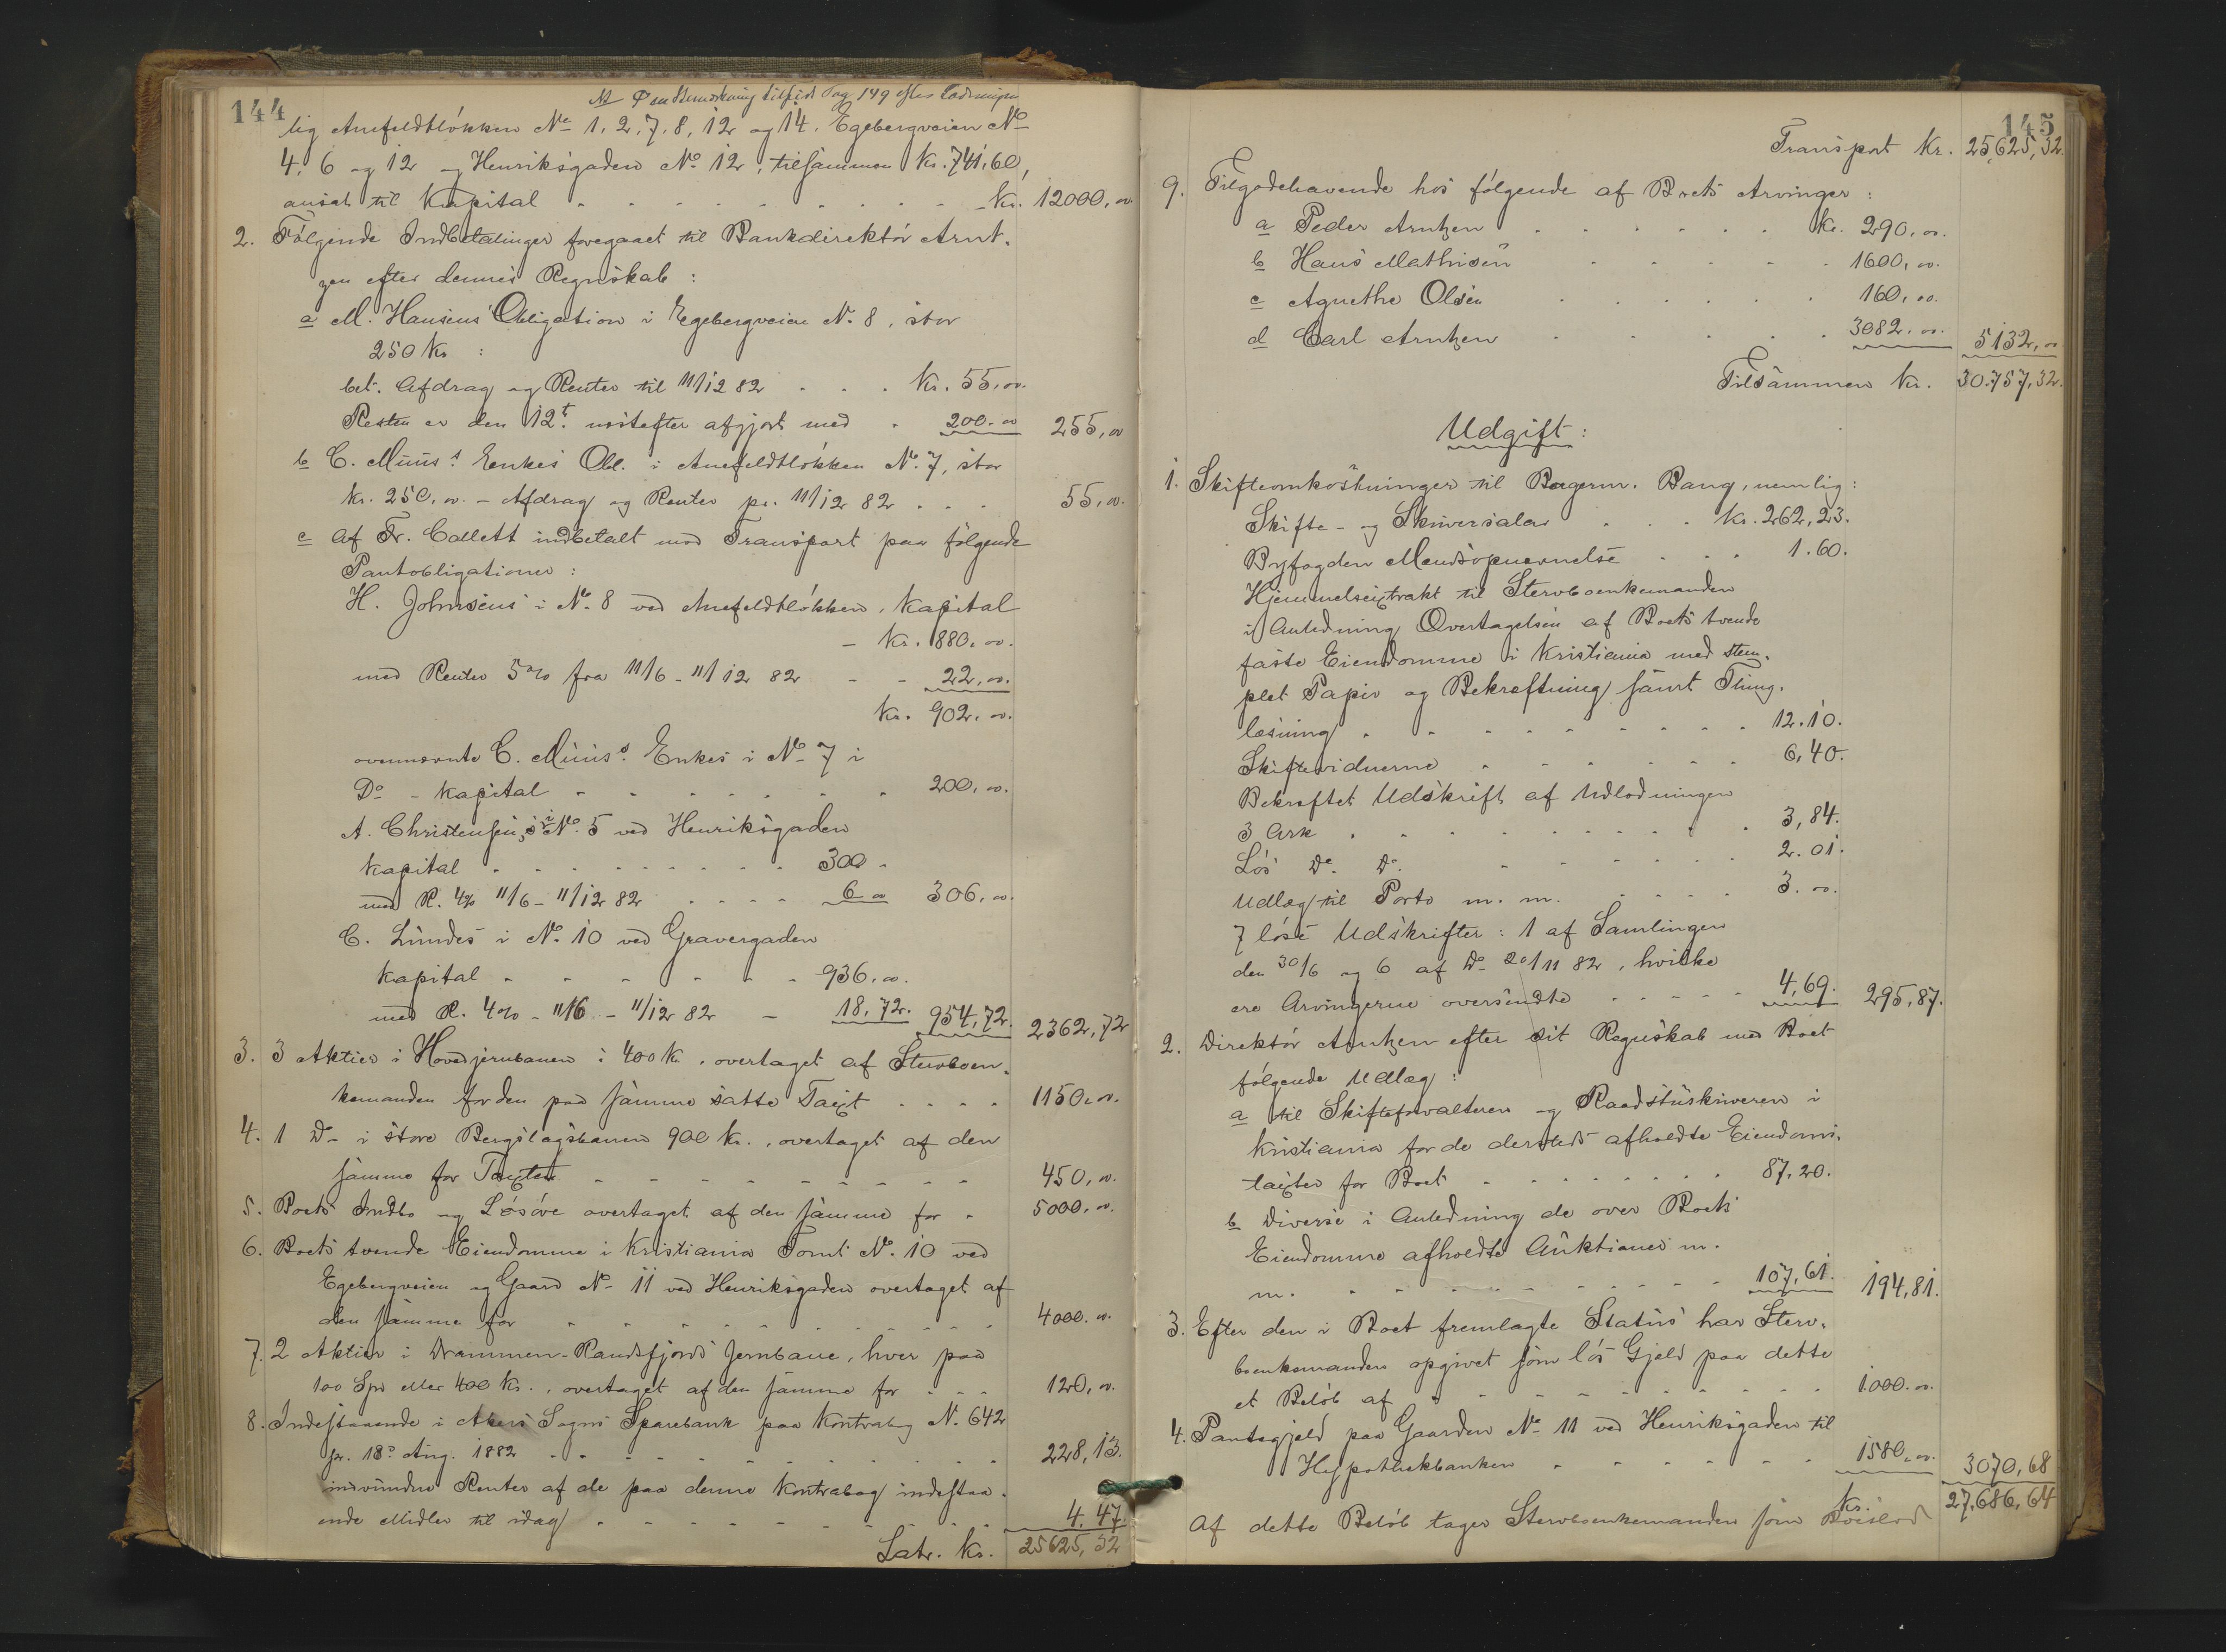 144
NB Ø en Bemærkning tilført Pag 149 efter Lodningen
lig Anefeldtløkken No 1. 2. 7. 8, 12 og 14. Egebergveien No
4. 6 og 12 og Henriksgaden No 12, tilsammen Kr. 741,60,
ansat til Kapital - - - Kr. 12000,00
2. Følgende Indbetalinger foregaaet til Bankdirektør Arnt-
zen efter dennes Regnskab:
a M. Hansens Obligation i Egebergveien No 8, stor
250 Kr :
bet. Afdrag og Renter til 11/12 82 - - - Kr. 55,00.
Resten er den 12t. næstefter afgjort med - 200.00 255,00
b C. Muus's Enkes Obl. i Anefeldtløkken No. 7, stor
Kr. 250,00. - Afdrag og Renter pr. 11/12 82 . . . 55,00.
c Af Fr. Collett indbetalt mod Transport paa følgende
Pantobligationer :
H. Johnsens i No. 8 ved Anefeldtløkken, Kapital
- Kr. 880,00.
med Renter 5% fra 11/6 - 11/12 82 - - 22,00.
Kr. 902.00.
ovennævnte C. Muus's Enkes i No 7 i
Do - Kapital - - - 200,00.
A. Christensens i No. 5 ved Henriksgaden
Kapital - - - 300 -
med R. 4% 11/6 - 11/12 82 - - - 6 00 306,00.
C. Lundes i No. 10 ved Gravergaden
Kapital - - - 936,00.
med R. 4% - 11/6 - 11/12 82 - 18,72. 954,72. 2362,72
3. 3 Aktier i Hovedjernbanen i 400 Kr, overtaget af Stervboen-
kemanden for den paa samme satte Taxt . . . . 1150,00.
4. 1 Do i store Bergslagsbanen 900 Kr., overtaget af den
samme for Taxten - - - 450,00.
5. Boets Indbo og Løsøre overtaget af den samme for - 5000,00.
6. Boets tvende Eiendomme i Kristiania Tomt No. 10 ved
Egebergveien og Gaard No 11 ved Henriksgaden overtaget af
den samme for - - - 4000.00.
7. 2 Aktier i Drammen-Randsfjords Jernbane, hver paa
100 Spd eller 400 Kr., overtaget af den samme for - - - 120,00.
8. Indestaaende i Akers Sogns Sparebank paa Kontrabog No. 642
pr. 18de Aug. 1882 - - - 228,13.
indvundne Renter af de paa denne Kontrabog indestaa-
ende Midler til idag - - - 4.47.
Latr. Kr. 25625,32
145
Transport Kr. 25,625,32.
9. Tilgodehavende hos følgende af Boets Arvinger :
a Peder Arntzen - - - Kr. 290,00.
b Hans Mathisen - - - 1600,00.
c Agnethe Olsen - - - 160,00.
d Carl Arntzen - - - 3082.00. 5132,00
Tilsammen Kr. 30.757,32.
Udgift :
1. Skifteomkostninger til Borgerm. Bang, nemlig :
Skifte- og Skriversalær . . . Kr. 262,23.
Byfogden Mandsopnævnelse . . . 1.60.
Hjemmelsextrakt til Stervboenkemanden
i Anledning Overtagelsen af Boets tvende
faste Eiendomme i Kristiania med stem-
plet Papir og Bekræftning samt Thing-
læsning - - - 12.10.
Skiftevidnerne - - - 6,40.
Bekræftet Udskrift af Udlodningen
3 Ark - - - 3,84.
Løs Do. Do. - - - 2.01.
Udlæg til Porto m. m. - - - 3.00.
7 løse Udskrifter : 1 af Samlingen
den 30/6 og 6 af Do 20/11 82, hvilke
ere Arvingerne oversendte - - - 4,69. 295,87.
2. Direktør Arntzen efter sit Regnskab med Boet
følgende Udlæg :
a til Skifteforvalteren og Raadstuskriveren i
Kristiania for de dersteds afholdte Eiendoms-
taxter for Boet - - - 87,20.
b Diverse i Anledning de over Boets
Eiendomme afholdte Auktioner m.
m. - - - 107,61. 194,81.
3. Efter den i Boet fremlagte Status har Sterv-
boenkemanden opgivet som løs Gjeld paa dette
et Beløb af - - - 1000.00.
4. Pantegjeld paa Gaarden No 11 ved Henriksgaden til
Hypothekbanken - - - 1580,00. 3070,68
Kr. 27,686,64
Af dette Beløb tager Stervboenkemanden som Boeslod